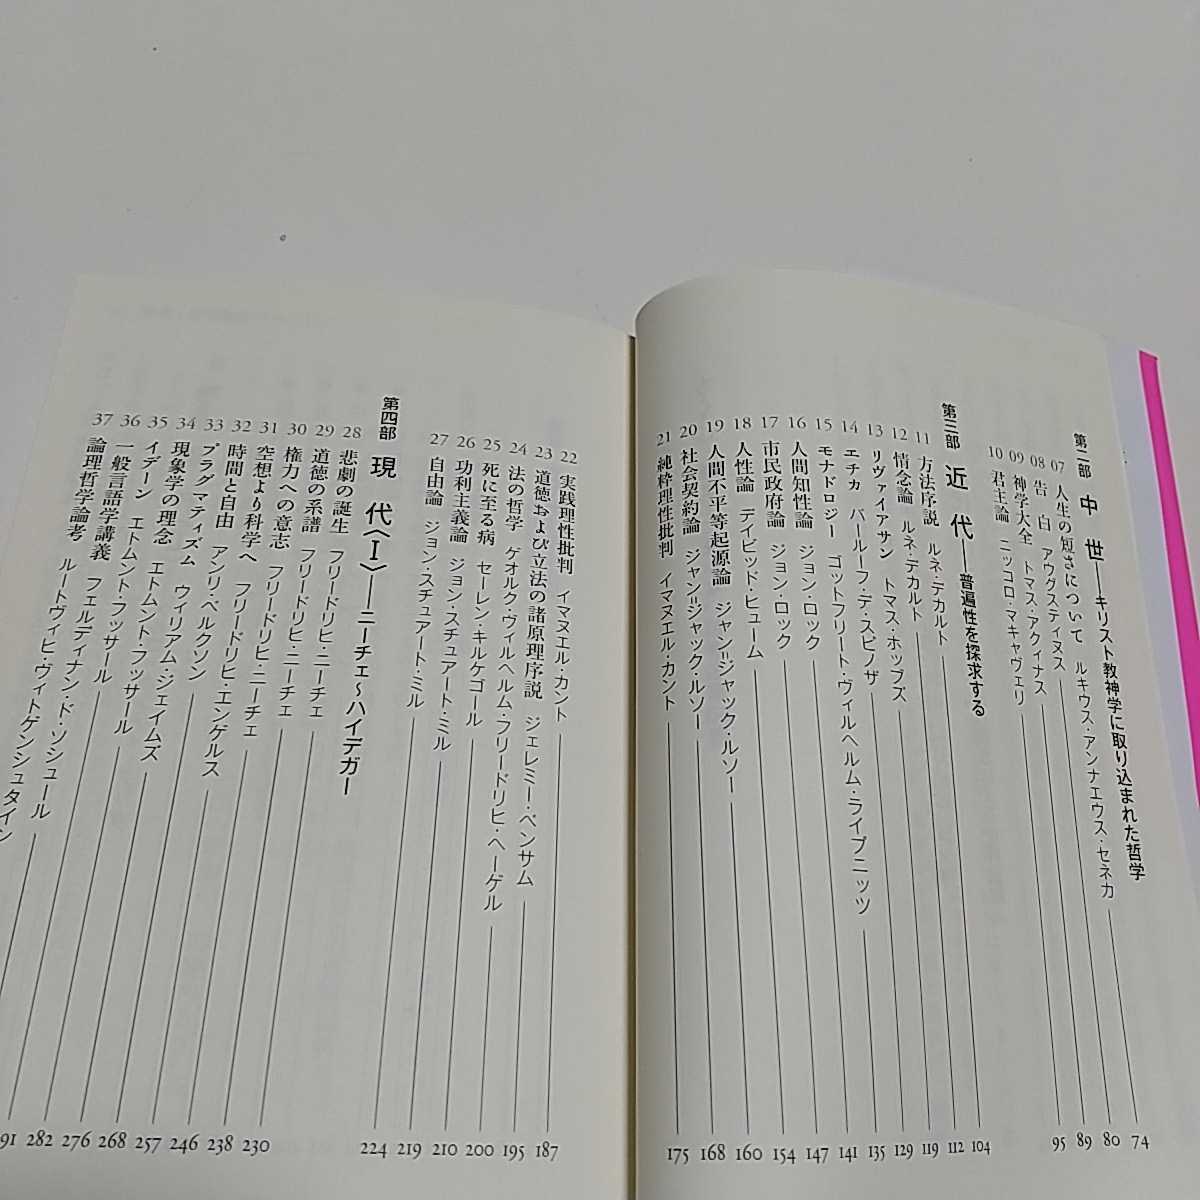 第二部 中 世――キリスト教神学に取り込まれた哲学
07 人生の短さについて ルキウス・アンナエウス・セネカ 74
08 告 白 アウグスティヌス 80
09 神学大全 トマス・アクィナス 89
10 君主論 ニッコロ・マキャヴェリ 95
第三部 近 代――普遍性を探求する
11 方法序説 ルネ・デカルト 104
12 情念論 ルネ・デカルト 112
13 リヴァイアサン トマス・ホッブズ 119
14 エチカ バールーフ・デ・スピノザ 129
15 モナドロジー ゴットフリート・ヴィルヘルム・ライプニッツ 135
16 人間知性論 ジョン・ロック 141
17 市民政府論 ジョン・ロック 147
18 人性論 デイビッド・ヒューム 154
19 人間不平等起源論 ジャン=ジャック・ルソー 160
20 社会契約論 ジャン=ジャック・ルソー 168
21 純粋理性批判 イマヌエル・カント 175
22 実践理性批判 イマヌエル・カント 187
23 道徳および立法の諸原理序説 ジェレミー・ベンサム 195
24 法の哲学 ゲオルク・ヴィルヘルム・フリードリヒ・ヘーゲル 200
25 死に至る病 セーレン・キルケゴール 210
26 功利主義論 ジョン・スチュアート・ミル 219
27 自由論 ジョン・スチュアート・ミル 224
第四部 現 代〈Ⅰ〉――ニーチェ〜ハイデガー
28 悲劇の誕生 フリードリヒ・ニーチェ 230
29 道徳の系譜 フリードリヒ・ニーチェ 238
30 権力への意志 フリードリヒ・ニーチェ 246
31 空想より科学へ フリードリヒ・エンゲルス 257
32 時間と自由 アンリ・ベルクソン 268
33 プラグマティズム ウィリアム・ジェイムズ 276
34 現象学の理念 エトムント・フッサール 282
35 イデーン エトムント・フッサール 91
36 一般言語学講義 フェルディナン・ド・ソシュール
37 論理哲学論考 ルートヴィヒ・ヴィトゲンシュタイン